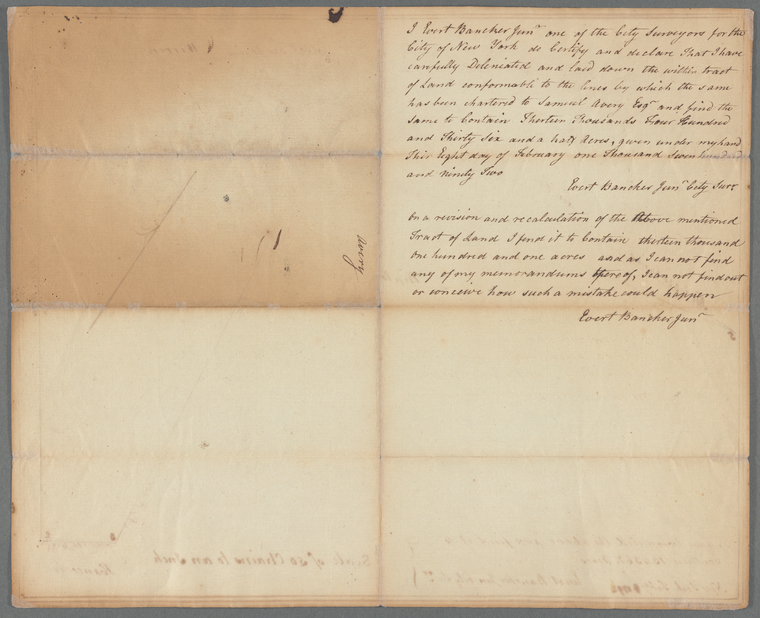 I Evert Bancker Junr one of the City Surveyors for the
City of New York do Certify and declare That I have
carefully Deleneated and laid down the within tract
of Land conformable to the lines by which the same
has been chartered to Samuel Avery Esqr and find the
same to Contain Therteen Thousands Four Hundred
and Thirty Six and a half Acres, given under my hand
This Eight day of February one Thousand Seven hundred
and Ninety Two
Evert Bancker Junr City Surr
On a revision and recalculation of the Above mentioned
Tract of Land I find it to Contain therteen thousand
one hundred and one acres and as I can not find
any of my memorandums thereof, I can not find out
or conceive how such a mistake could happen
Evert Bancker Junr
Avery
Scale of 30 Chains to an Inch